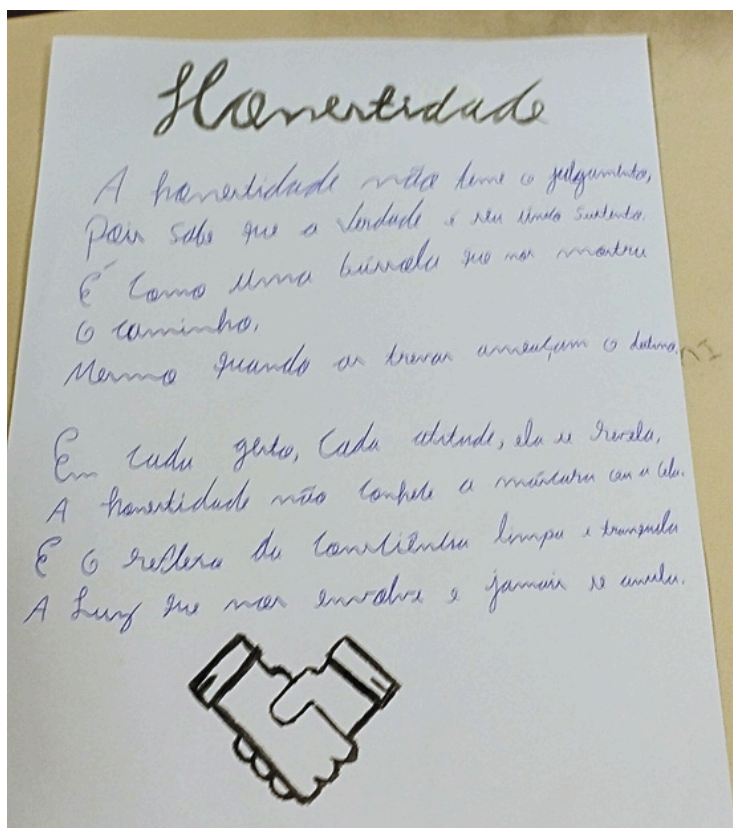 Honestidade
A honestidade não teme o julgamento,
Pois sabe que a verdade é seu único sustento.
É como uma bússola que nos mostra
o caminho,
Mesmo quando as trevas ameaçam o destino.
Em cada gesto, cada atitude, ela se revela,
A honestidade não conhece a máscara
É o reflexo da consciência limpa e tranquila
A Luz que nos envolve e jamais se anula.